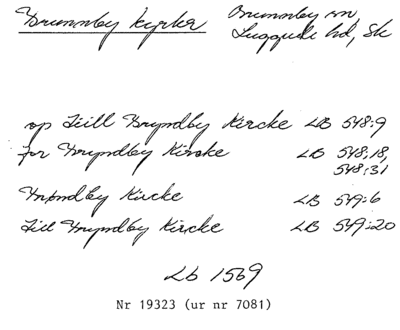 Brunnby kyrka Brunnby sn
Luggude hd, Sk
op Tiill Bryndby Kircke LB 548:9
for Bryndby Kircke LB 548:18,
548:31
Brøndby Kircke LB 549:6
Till Bryndby Kircke LB 549:20
Lb 1569
Nr 19323 (ur nr 7081)